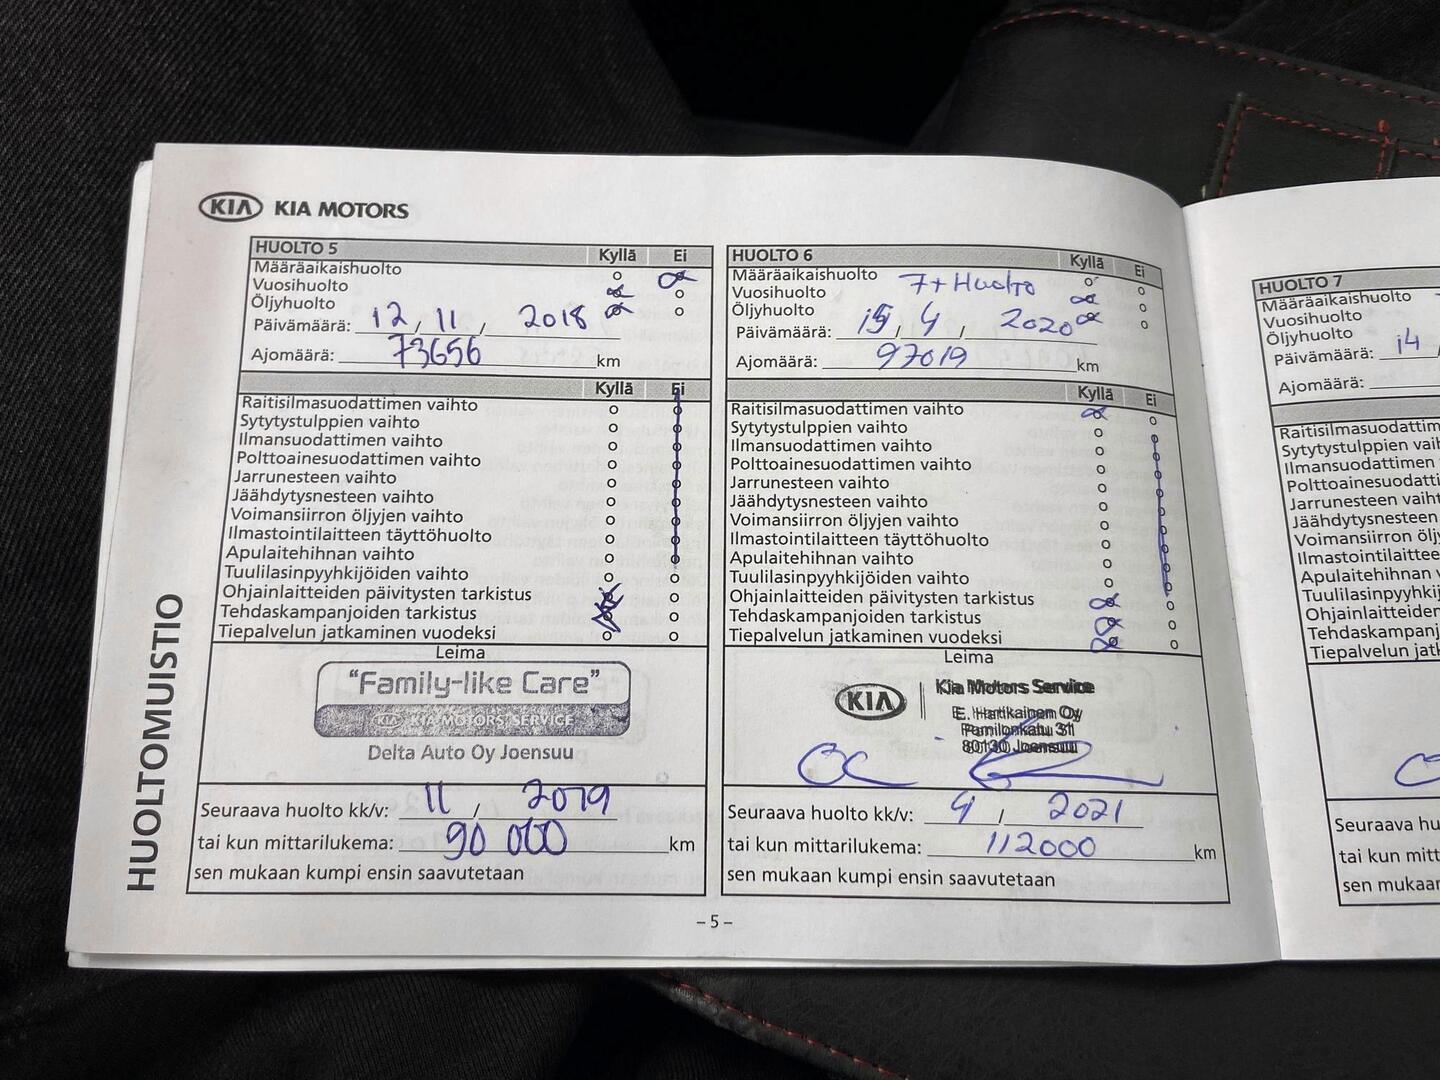 KIA KIA MOTORS
HUOLTOMUISTIO
HUOLTO 5 Kyllä Ei
Määräaikaishuolto
Vuosihuolto
Öljyhuolto
Päivämäärä: 12 / 11 / 2018
Ajomäärä: 73656 km
Kyllä Ei
Raitisilmasuodattimen vaihto
Sytytystulppien vaihto
Ilmansuodattimen vaihto
Polttoainesuodattimen vaihto
Jarrunesteen vaihto
Jäähdytysnesteen vaihto
Voimansiirron öljyjen vaihto
Ilmastointilaitteen täyttöhuolto
Apulaitehihnan vaihto
Tuulilasinpyyhkijöiden vaihto
Ohjainlaitteiden päivitysten tarkistus
Tehdaskampanjoiden tarkistus
Tiepalvelun jatkaminen vuodeksi
Leima
"Family-like Care"
KIA KIA MOTORS SERVICE
Delta Auto Oy Joensuu
Seuraava huolto kk/v: 11 / 2019
tai kun mittarilukema: 90 000 km
sen mukaan kumpi ensin saavutetaan
HUOLTO 6 Kyllä Ei
Määräaikaishuolto 7+ Huolto
Vuosihuolto
Öljyhuolto
Päivämäärä: 15 / 4 / 2020
Ajomäärä: 97019 km
Kyllä Ei
Raitisilmasuodattimen vaihto
Sytytystulppien vaihto
Ilmansuodattimen vaihto
Polttoainesuodattimen vaihto
Jarrunesteen vaihto
Jäähdytysnesteen vaihto
Voimansiirron öljyjen vaihto
Ilmastointilaitteen täyttöhuolto
Apulaitehihnan vaihto
Tuulilasinpyyhkijöiden vaihto
Ohjainlaitteiden päivitysten tarkistus
Tehdaskampanjoiden tarkistus
Tiepalvelun jatkaminen vuodeksi
Leima
KIA Kia Motors Service
E. Hartikainen Oy
Pamilonkatu 31
80130 Joensuu
Seuraava huolto kk/v: 4 / 2021
tai kun mittarilukema: 112000 km
sen mukaan kumpi ensin saavutetaan
- 5 -
HUOLTO 7
Määräaikaishuolto
Vuosihuolto
Öljyhuolto
Päivämäärä: 14
Ajomäärä:
Raitisilmasuodattim
Sytytystulppien vaih
Ilmansuodattimen
Polttoainesuodatti
Jarrunesteen vaiht
Jäähdytysnesteen
Voimansiirron öljy
Ilmastointilaittee
Apulaitehihnan v
Tuulilasinpyyhkij
Ohjainlaitteiden
Tehdaskampanj
Tiepalvelun jatk
Seuraava hu
tai kun mitt
sen mukaan